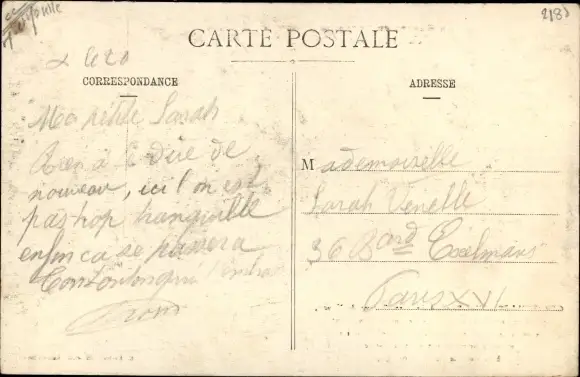 2188
CARTE POSTALE
CORRESPONDANCE
Ma petite Sarah
Rien à te dire de
nouveau, ici l'on est
pas trop tranquille
enfin ca se passera
ADRESSE
Mademoiselle
Sarah Venelle
36 Bard Exelmans
Paris XVI